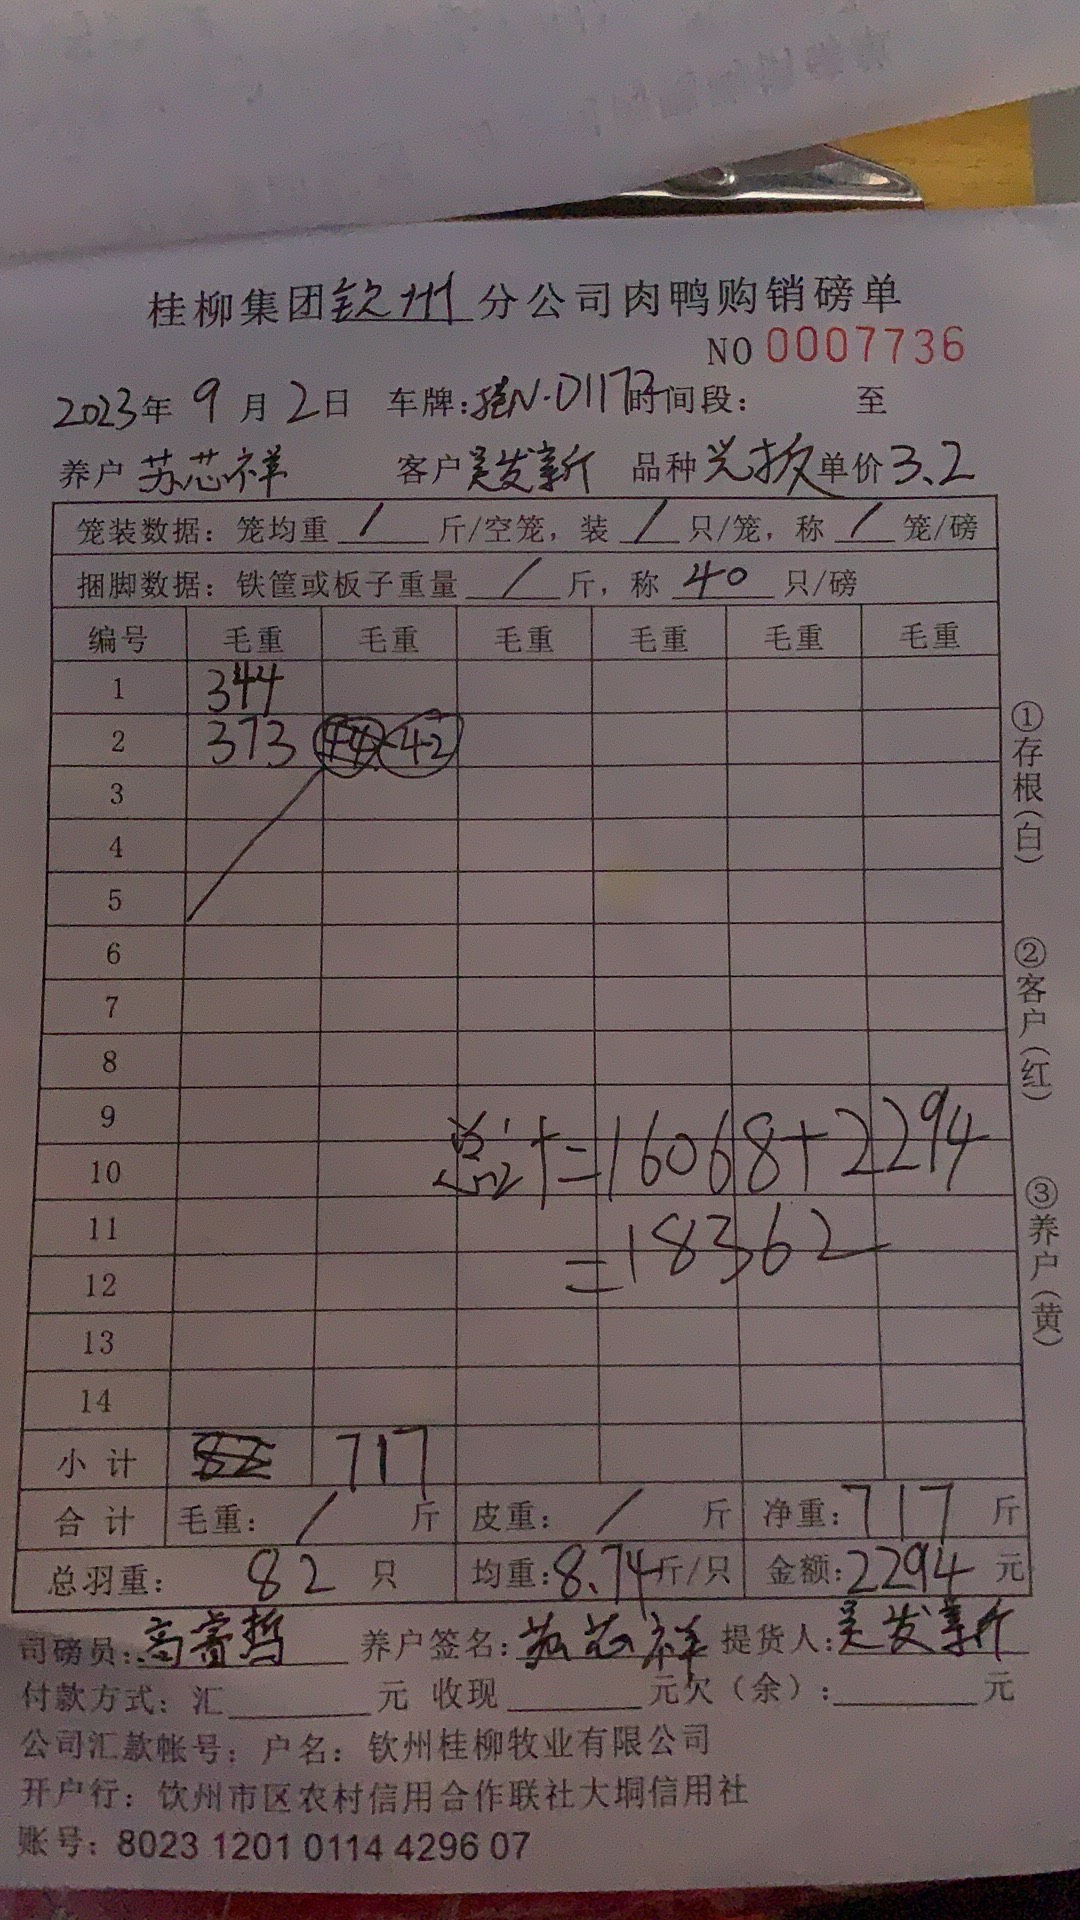 桂柳集团钦州分公司肉鸭购销磅单
NO 0007736
2023年 9月 2日 车牌:桂N·D117 时间段: 至
养户 苏芯祥 客户 吴发新 品种 单价 3.2
笼装数据: 笼均重 / 斤/空笼, 装 / 只/笼, 称 / 笼/磅
捆脚数据: 铁筐或板子重量 / 斤, 称 40 只/磅
编号 毛重 毛重 毛重 毛重 毛重 毛重
1 344
2 373 42
3
4
5
6
7
8
9
10
总计=16068+2294
11
=18362
12
13
14
小计 717
合计 毛重: / 斤 皮重: / 斤 净重: 717 斤
总羽重: 82 只 均重: 8.74 斤/只 金额: 2294 元
司磅员: 高睿哲 养户签名: 苏芯祥 提货人: 吴发新
付款方式: 汇 元 收现 元欠(余): 元
公司汇款帐号: 户名: 钦州桂柳牧业有限公司
开户行: 钦州市区农村信用合作联社大垌信用社
账号: 8023 1201 0114 4296 07
①存根(白)
②客户(红)
③养户(黄)